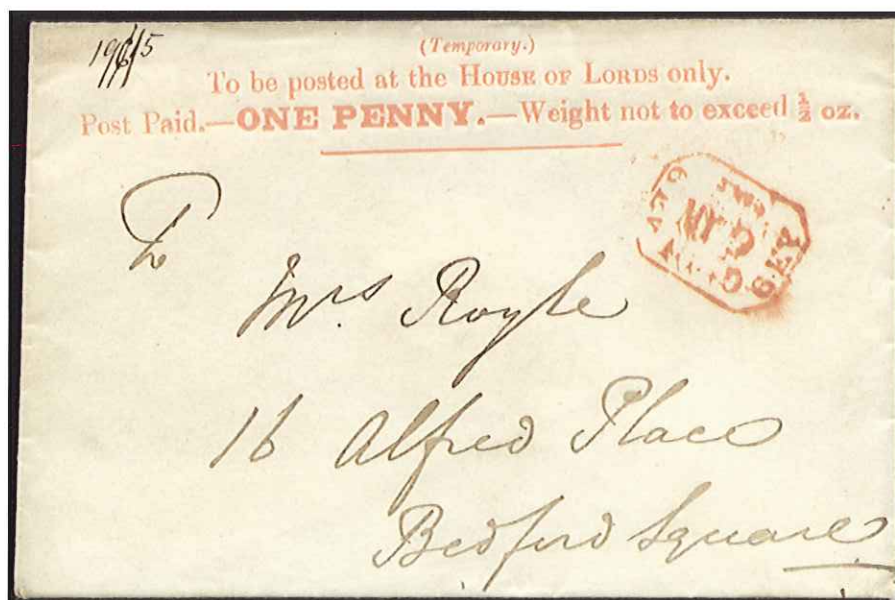 (Temporary.)
To be posted at the HOUSE OF LORDS only.
Post Paid.—ONE PENNY.—Weight not to exceed ½ oz.
To
Mrs. Royle
16 Alfred Place
Bedford Square